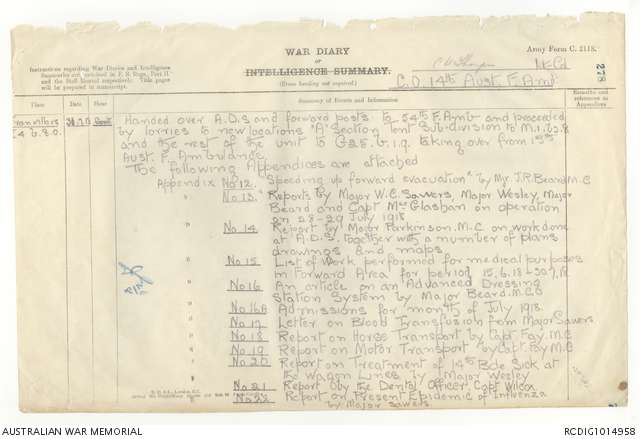 WAR DIARY
OR
INTELLIGENCE SUMMARY.
(Erase heading not required).
Army Form C. 2118.
Instructions regarding War Diaries and Intelligence
Summaries are contained in F. S. Regs., Part II.
and the Staff Manual respectively. Title pages
will be prepared in manuscript.
Lt Col
C.O. 14th Aust. F. Amb.
278
Place
Date
Hour
Summary of Events and Information
Remarks and
references to
Appendices
31.7.18
Handed over A.D.S and forward posts to 54th F. Amb and proceeded
by lorries to new locations "A" Section Tent Sub-division to M.1.b.2.8
and the rest of the unit to G.25.b.1.9. taking over from 15th
Aust. F. Ambulance
The following Appendices are attached
Appendix No 12. "Speeding up forward evacuation" by Mjr. J.R. Beard M.C
" No 13. Reports by Major W.C. Sawers, Major Wesley, Major
Beard and Capt McGlashan on operation
on 28-29 July 1918
" No 14 Report by Major Parkinson. M.C. on work done
at A.D.S, together with a number of plans
drawings and maps
" No 15 List of Work performed for medical purposes
in Forward Area for period 15.6.18 - 30.7.18
" No 16 An article on an Advanced Dressing
Station System by Major Beard. M.C.
" No 16A Admissions for month of July 1918.
" No 17 Letter on Blood Transfusion from Major Sawers
" No 18 Report on Horse Transport by Capt. Fay. M.C
" No 19 Report on Motor Transport by Capt. Fay M.C
" No 20 Report on Treatment of 14th Bde Sick at
the Wagon Lines by Major Wesley
" No 21 Report by the Dental Officer, Capt Wilcox
" No 22 Report on Present Epidemic of Influenza
by Major Sawers
AUSTRALIAN WAR MEMORIAL
RCDIG1014958